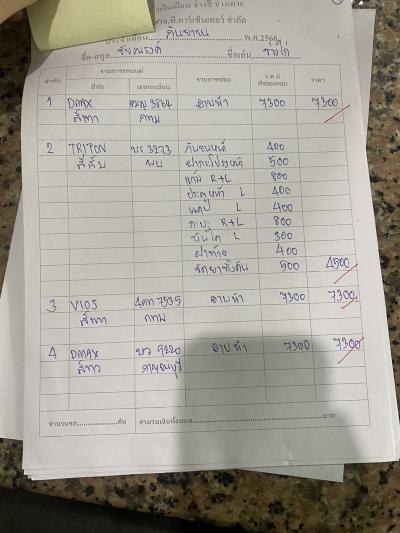 เงินเดือน ช่างสี ช่างเคาะ
เอ.ที.คาร์เซ็นเตอร์ จำกัด
ประจำเดือน กันยายน พ.ศ.2566
ชื่อ-สกุล ชื่อเล่น
ลำดับ รายการรถยนต์ รายการซ่อม ราคา
ยี่ห้อ เลขทะเบียน
1 DMAX 3864 อาบน้ำ 7300 7300
สีเทา กทม
2 TRITON บร 3273 กันชนหน้า 400
สีส้ม พบ ฝากระโปรงหน้า 500
แก้ม R+L 800
ประตูหน้า L 400
แคป L 400
กะบะ R+L 800
บันได L 300
ฝาท้าย 400
ขัดยาทั้งคัน 500 4500
3 VIOS 7535 อาบน้ำ 7300 7300
สีเทา กทม
4 DMAX บว 9220 อาบน้ำ 7300 7300
สีขาว กาญจนบุรี
จำนวนรถ..........คัน จำนวนเงินทั้งหมด..........บาท